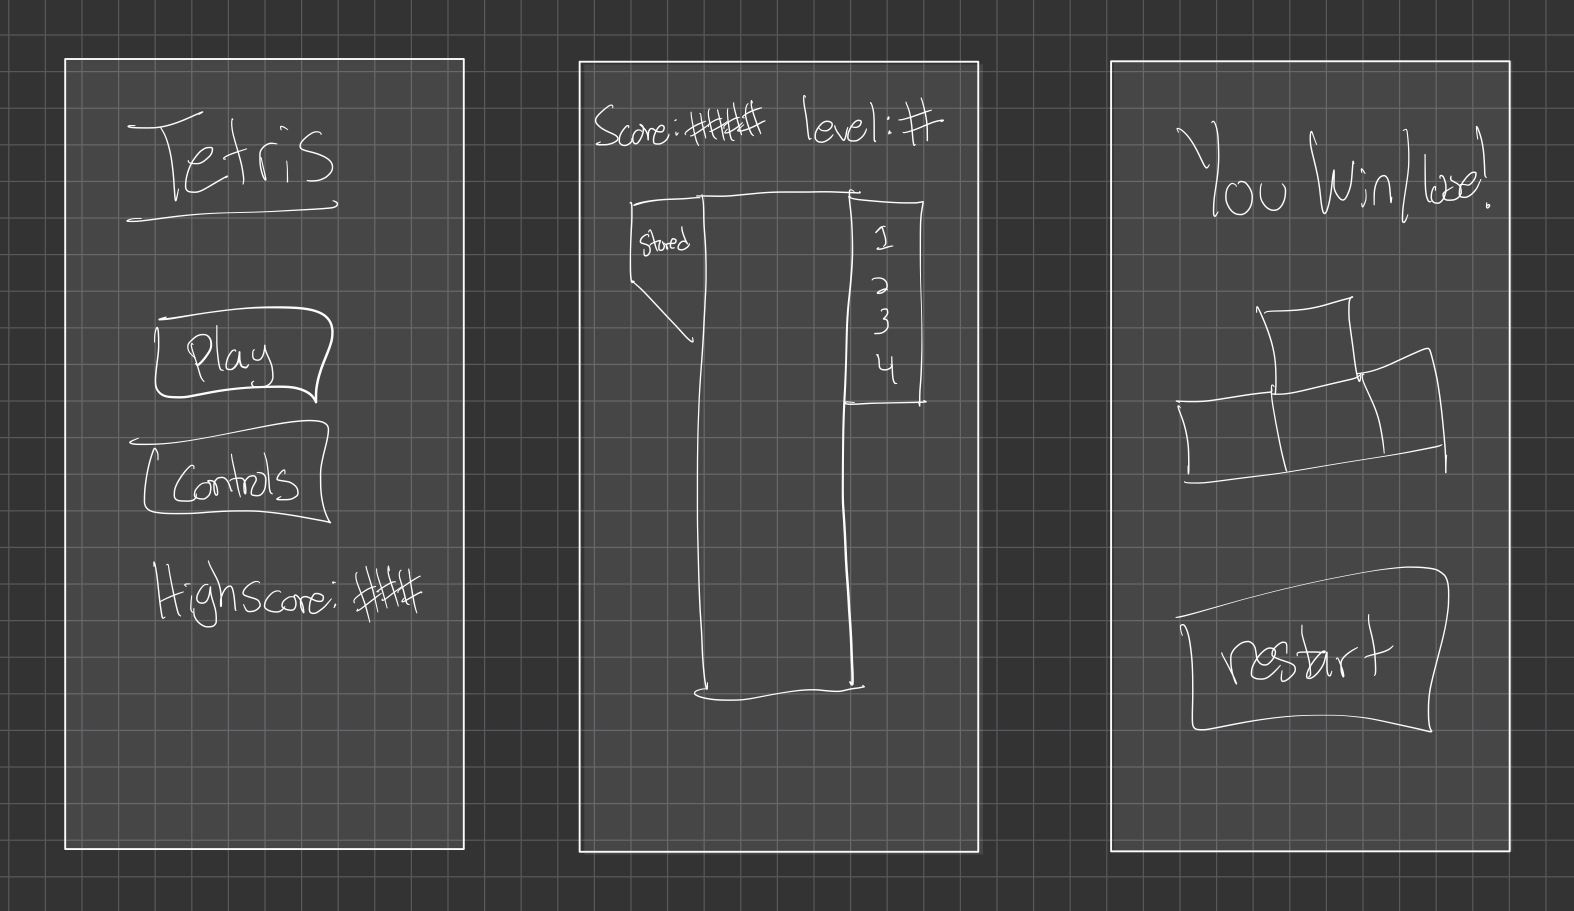 Tetris
Play
Controls
Highscore: ###
Score: #### level: #
Stored
1
2
3
4
You Win/lose!
restart